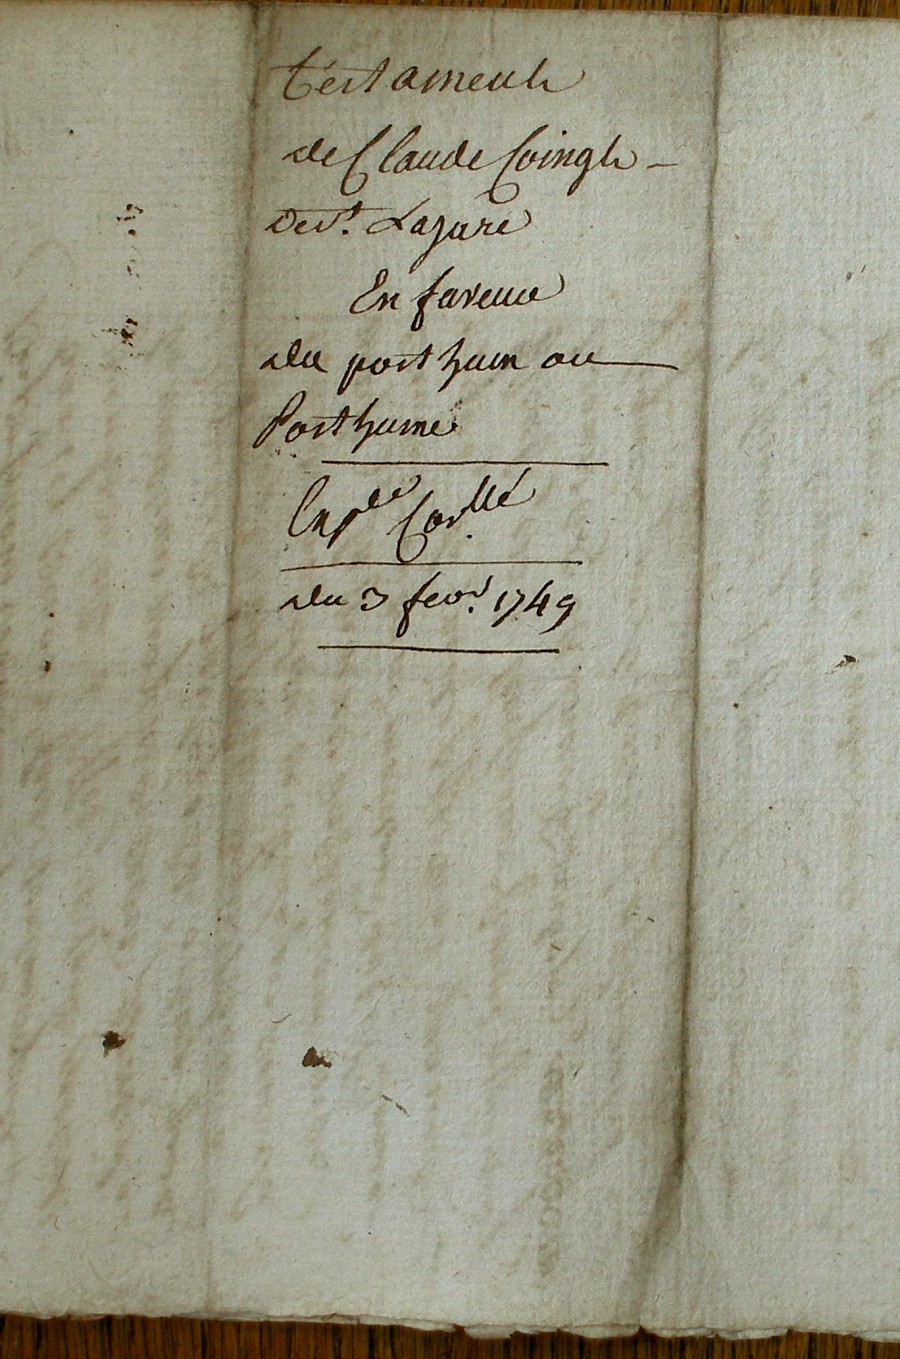 Testament
de Claude Coingt
de St. Lazare
En faveur
du posthum ou
Posthume
Exp.de Coll.né
du 3 fevr. 1749